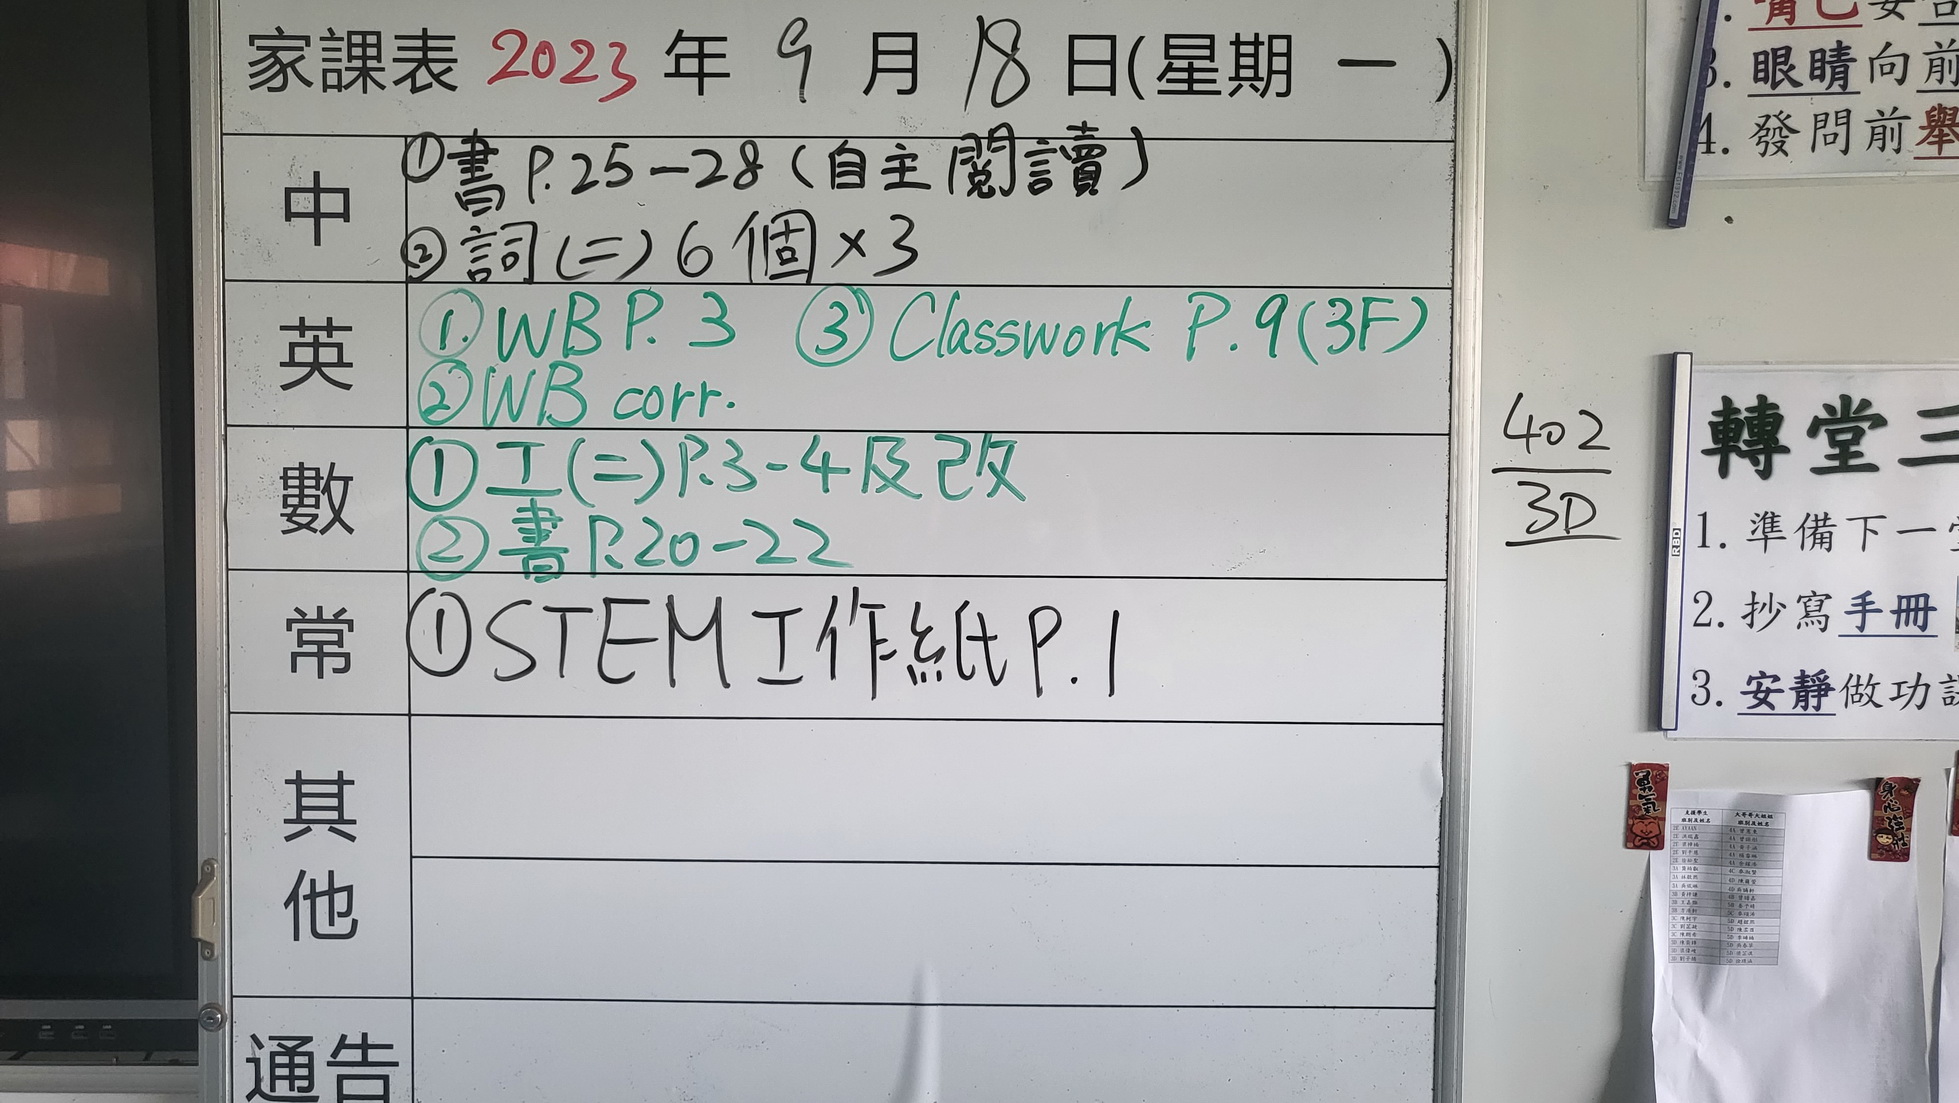 家課表 2023 年 9 月 18 日(星期 一 )
中
①書 P.25-28 (自主閱讀)
②詞(二) 6 個 × 3
英
①. WB P. 3 ③ Classwork P.9 (3F)
② WB corr.
數
① 工(二) P.3-4 及改
② 書 P.20-22
常
① STEM 工作紙 P.1
其他
通告
402
3D
3. 眼睛向前
4. 發問前舉
轉堂三
1. 準備下一堂
2. 抄寫手冊
3. 安靜做功課
RBD
勇氣
身心強壯
支援學生
班別及姓名
大哥哥大姐姐
班別及姓名